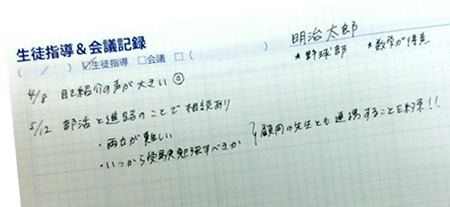 生徒指導&会議記録
( / ) ☑生徒指導 □会議 □( )
明治太郎
★野球部 ★数学が得意
4/8 自己紹介の声が大きい ◎
5/12 部活と進路のことで相談あり
・両立が難しい
・いつから受験勉強すべきか
顧問の先生とも連携することを約束!!